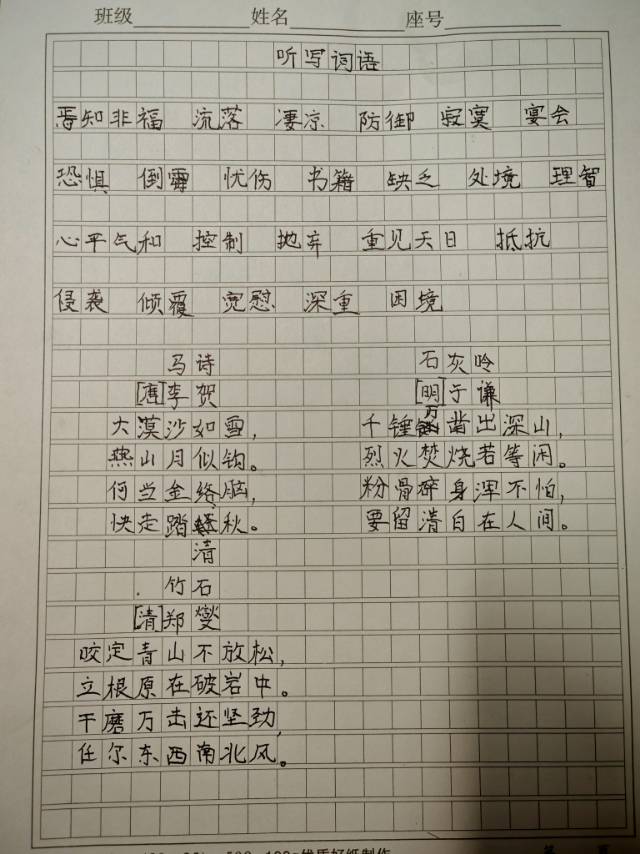 班级 姓名 座号
听写词语
焉知非福 流落 凄凉 防御 寂寞 宴会
恐惧 倒霉 忧伤 书籍 缺乏 处境 理智
心平气和 控制 抛弃 重见天日 抵抗
侵袭 倾覆 宽慰 深重 困境
马诗 石灰吟
[唐]李贺 [明]于谦
大漠沙如雪, 千锤万凿出深山,
燕山月似钩。 烈火焚烧若等闲。
何当金络脑, 粉骨碎身浑不怕,
快走踏清秋。 要留清白在人间。
竹石
[清]郑燮
咬定青山不放松,
立根原在破岩中。
千磨万击还坚劲,
任尔东西南北风。